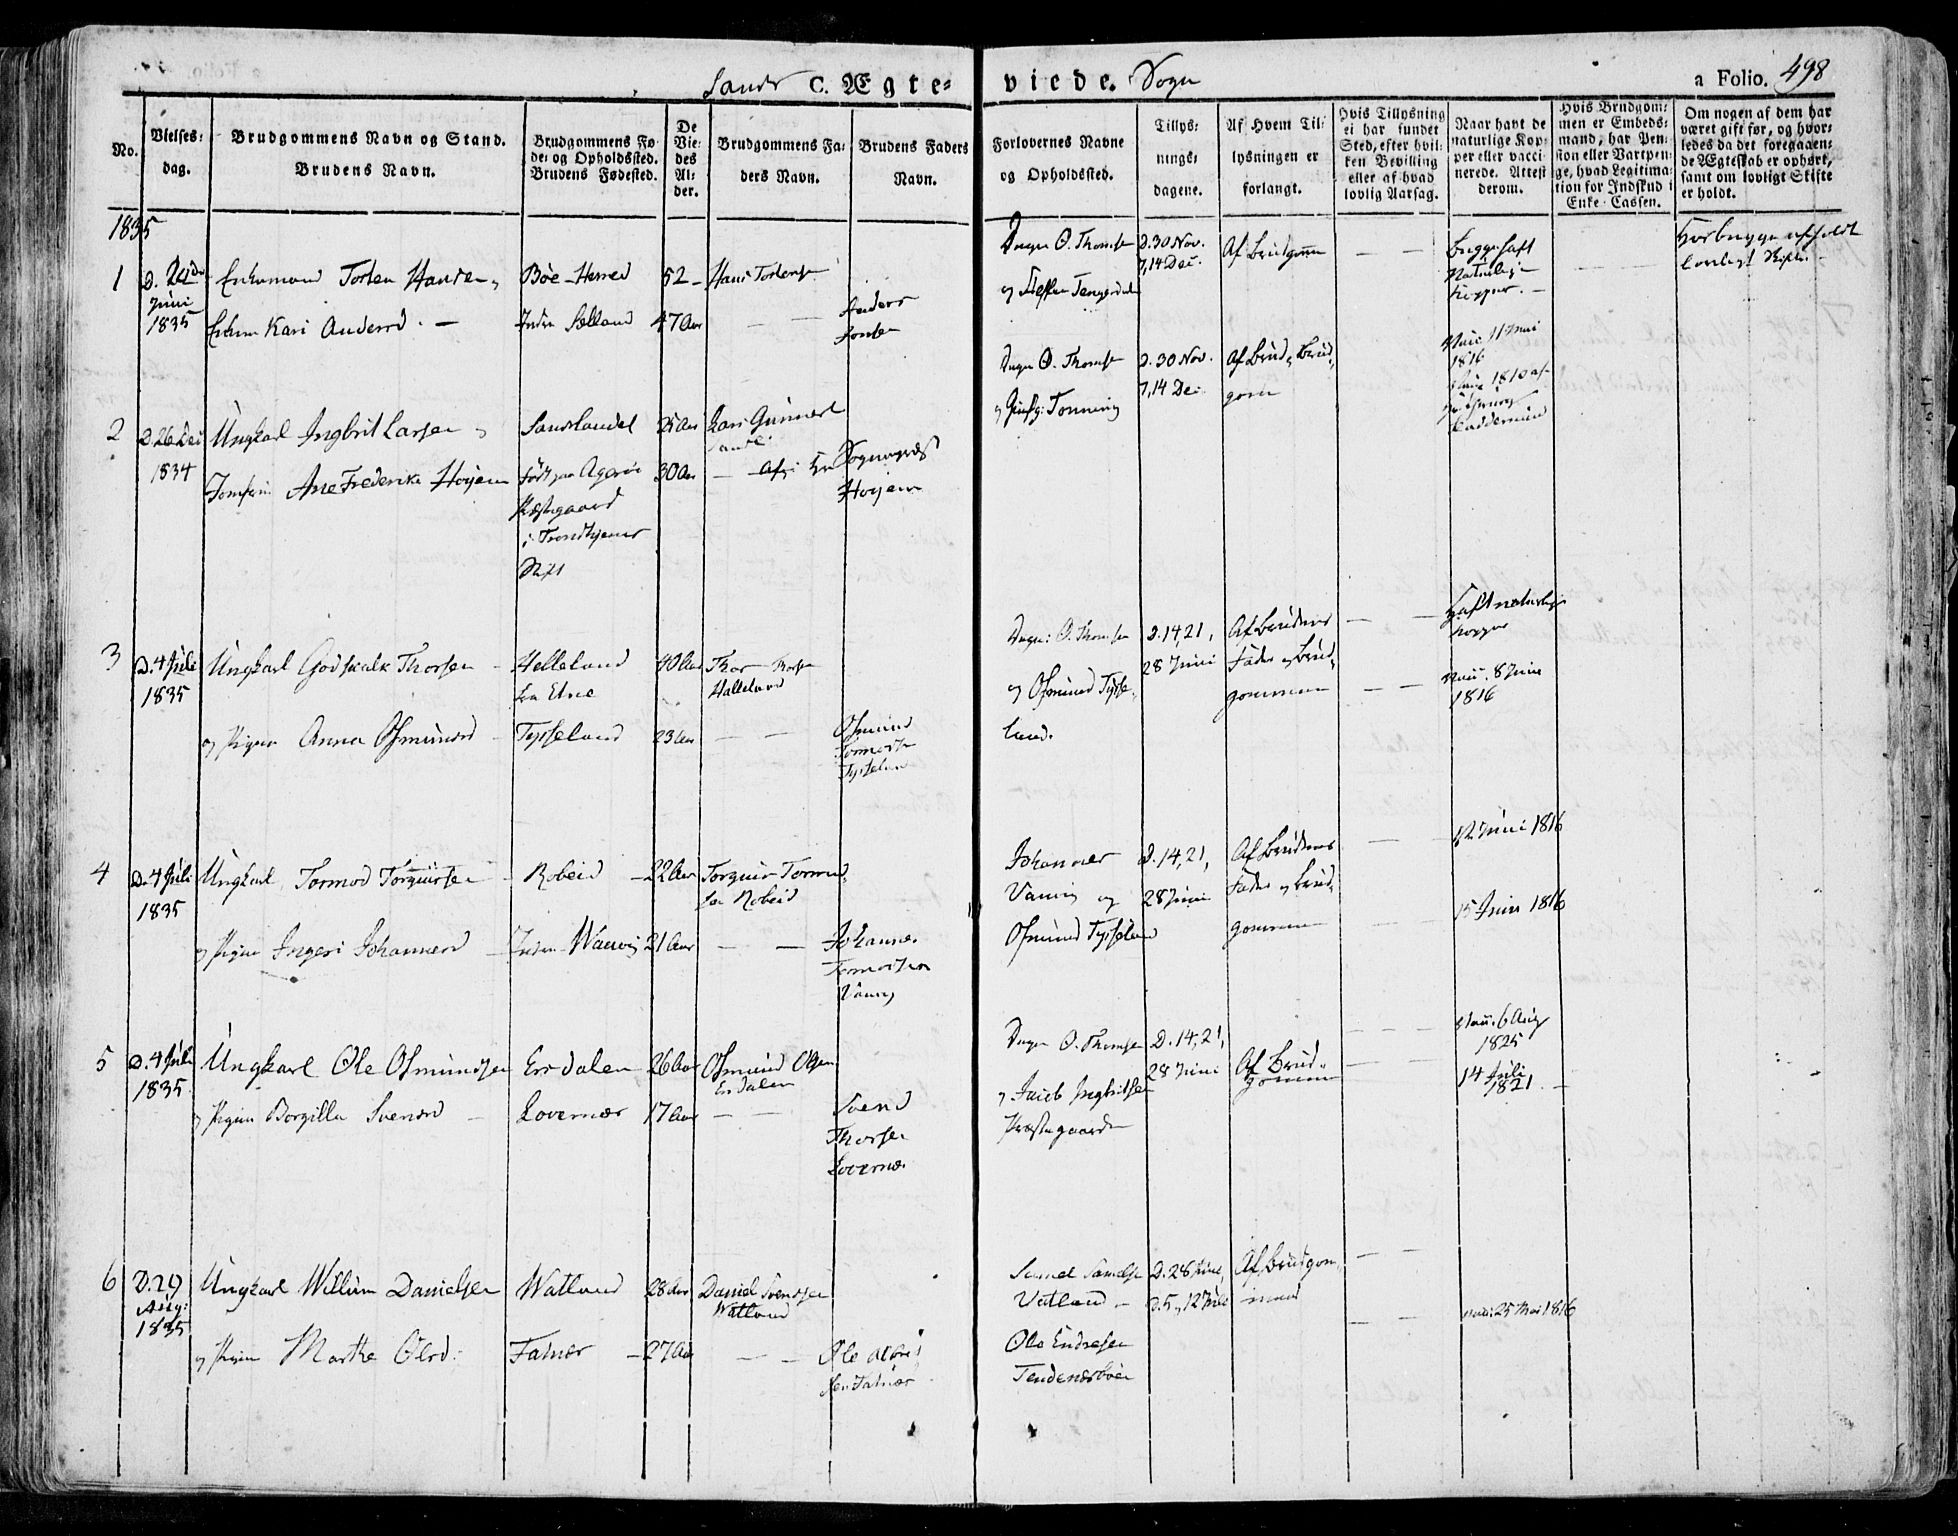 Sands C. Ægte=
viede. Sogn
a Folio. 498
No.
Vielses=
dag.
Brudgommens Navn og Stand.
Brudens Navn.
Brudgommens Fø=
de= og Opholdssted.
Brudens Fødested.
De
Vie=
des
Al=
der.
Brudgommens Fa=
ders Navn.
Brudens Faders
Navn.
Forlovernes Navne
og Opholdssted.
Tillys=
nings=
dagene.
Af Hvem Til=
lysningen er
forlangt.
Hvis Tillysning
ei har fundet
Sted, efter hvil=
ken Bevilling
eller af hvad
lovlig Aarsag.
Naar havt de
naturlige Kop=
per eller vacci=
nerede. Attest
derom.
Hvis Brudgom=
men er Embeds=
mand, har Pen=
sion eller Vartpen=
ge, hvad Legitima=
tion for Indskud i
Enke-Cassen.
Om nogen af dem har
været gift før, og hvor=
ledes da det foregaaen=
de Ægteskab er ophørt,
samt om lovligt Skifte
er holdt.
1835
1
Juni
1835
Enkemand Torsten Hansen
Enken Kari Andersd. —
Bøe - Herred
Indre Sælland
52 -
47 Aar
Hans Torstensen
— —
Anders
Jonsen
O. Thomsen
D. 30 Nov.
7, 14 Dec.
Af Brudgommen
— —
Begge haft
Naturlige
Kopper. —
— —
lovligt Skifte
2
D. 26 Dec
1834
Ungkarl Ingbrit Larsen
Jomfru Ane Frederika Hoyem
Sandslandet
Født paa Agerøe
Præstegaard
i Trondhjems
Stift
30 Aar
Lars Gunners
—
Sognepræst
Hoyem
O. Thomsen
D. 30 Nov.
7, 14 Dec
Af Brud & Brud=
gom
11 Juni
1816
1810
3
D. 4 Juli
1835
Ungkarl Godskalk Thorsen -
og Pigen Anna Osmundsd -
Helleland
fra Etne
Tysseland
40 Aar
23 Aar
Thor Thorsen
Helleland
— —
Osmund
Tormodsen
Tysseland
O. Thomsen
og Osmund Tysse=
land.
D. 14, 21,
28 Juni
Af Brudens
Fader og Brud=
gommen
— —
— —
Haft naturlige
Kopper
Vacc. 8 Juni
1816
4
D. 4 Juli
1835
Ungkarl Tormod Torquirsen -
og Pigen Ingeri Johannesd
Robeid
Indre Waavig
22 Aar
21 Aar
Torquir Tormod=
sen Robeid
— —
Johannes
Tormodsen
Vaavig
Johannes
Vaavig og
Osmund Tysseland
D. 14, 21,
28 Juni
Af Brudens
Fader og Brud=
gommen
— —
— —
12 Juni 1816
15 Juni 1816
5
D. 4 Juli
1835
Ungkarl Ole Osmundsen
og Pigen Borgilla Svensd -
Ersdalen
Lovernæs
26 Aar
17 Aar
Osmund Olsen
Ersdalen
— —
Svend
Thorsen
Lovernæs
O. Thomsen
og Jacob Ingbritsen
Præstegaarden
D. 14, 21,
28 Juni
Af Brud=
gommen
— —
— —
Vacc. 6 Aug
1825
14 Juli
1821. —
6
D. 29
Aug:
1835
Ungkarl Willum Danielsen
og Pigen Marthe Olsd:
Watland
Fatnæs —
28 Aar
27 Aar
Daniel Svendsen
Watland
— —
Ole
sen Fatnæs
Samel Samelsen
Vatland -
Ole Endresen
D. 28 Juni,
D. 5, 12 Juli
Af Brudgom=
men
— —
— —
Vacc: 25 Mai 1816